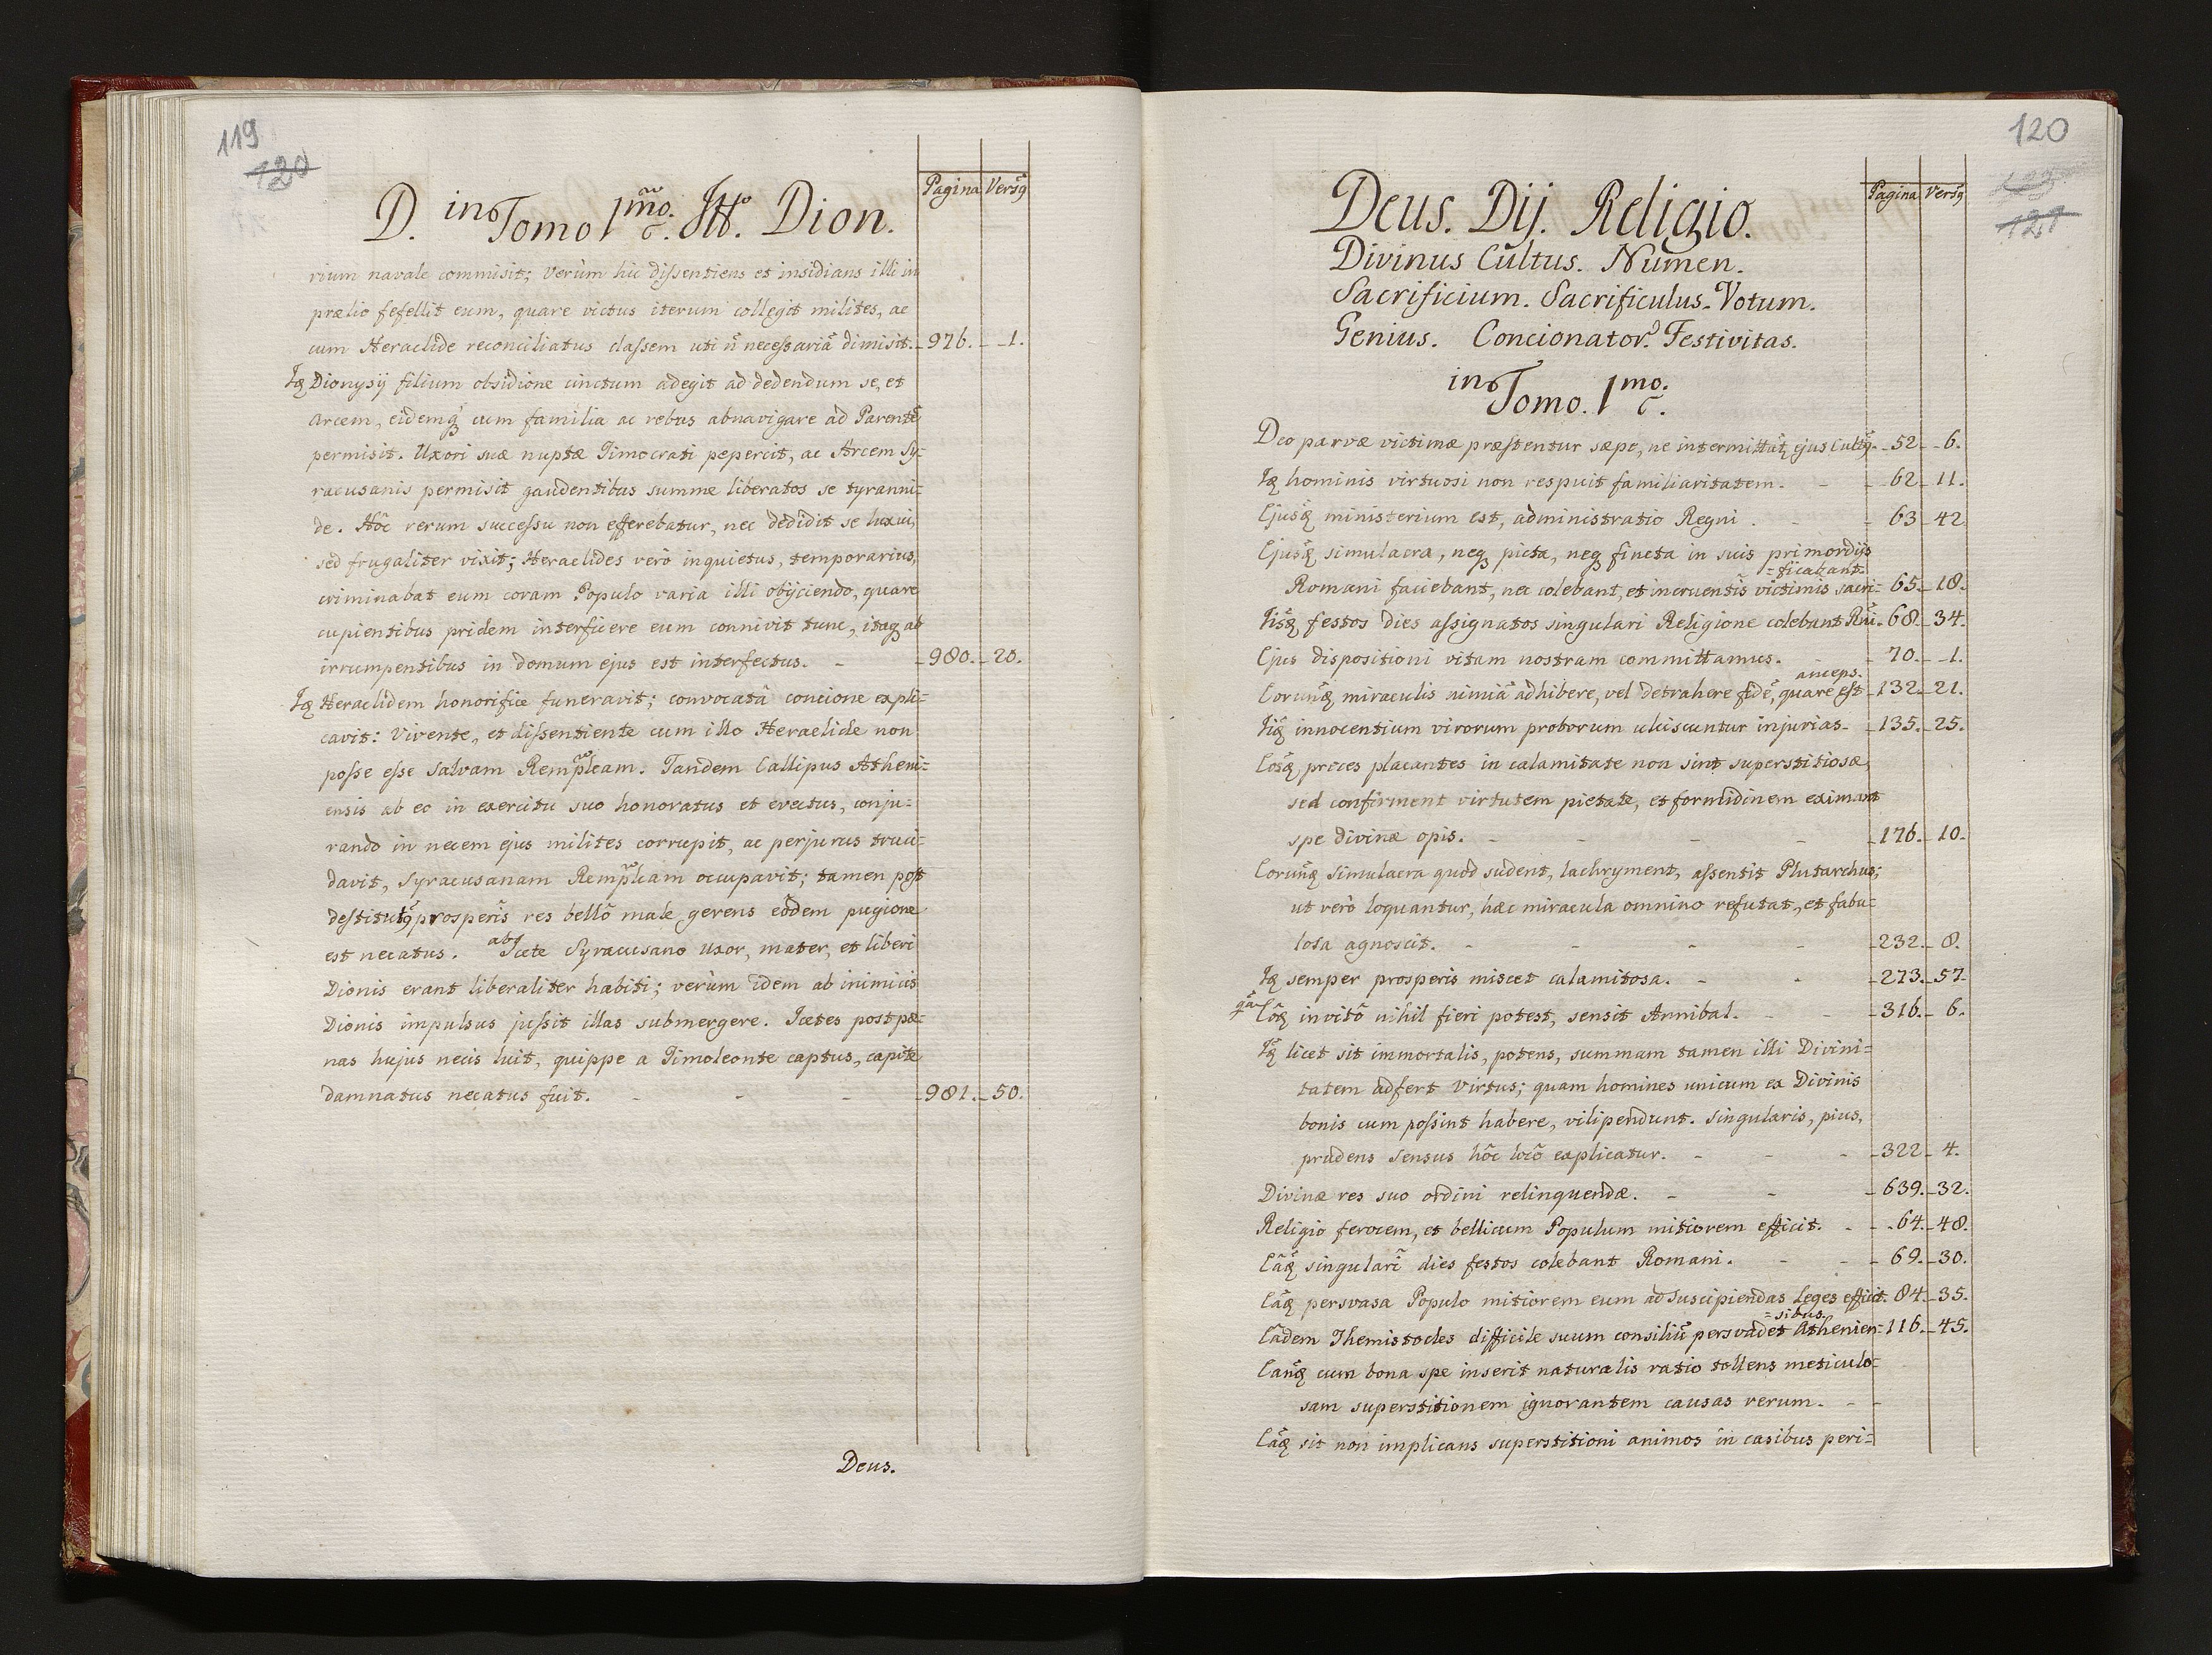 119
120
D. in Tomo 1mo. Dion.
Pagina Versq
rium navale commisit; verùm hic dissentiens et insidians illi in
prælio fefellit eum, quare victus iterum collegit milites, ac
cum Heraclide reconciliatus classem uti ñ necessariã dimisit. 976. 1.
Dionysij filium obsidione cinctum adegit ad dedendum se, et
Arcem, eidemq cum familia ac rebus abnavigare ad Parentẽ
permisit. Uxori suæ nuptæ Timocrati pepercit, ac Arcem Sy=
racusanis permisit gaudentibus summe liberatos se tyranni=
de. Hôc rerum successu non efferebatur, nec dedidit se luxui,
sed frugaliter vixit; Heraclides verò inquietus, temporarius,
criminabat eum coram Populo varia illi obijciendo, quare
cupientibus pridem interficere eum connivit tunc, itaq ab
irrumpentibus in domum ejus est interfectus. - 980. 20.
Heraclidem honorifice funeravit; convocatâ concione expli=
cavit: Vivente, et dissentiente cum illo Heraclide non
posse esse salvam Rempleam. Tandem Callipus Atheni=
ensis ab eo in exercitu suo honoratus et evectus, conju=
rando in necem ejus milites corrupit, ac perjurus truci=
davit, Syracusanam Rempleam occupavit; tamen post
destitutq prosperis res bellô male gerens eôdem pugione
est necatus. ab Icete Syracusano Uxor, mater, et liberi
Dionis erant liberaliter habiti; verùm idem ab inimicis
Dionis impulsus jussit illas submergere. Icetes post pæ=
nas hujus necis luit, quippe a Timoleonte captus, capite
damnatus necatus fuit. - - - 981. 50.
Deus.
120
121
Deus. Dij. Religio.
Pagina Versq
Divinus Cultus. Numen.
Sacrificium. Sacrificulus. Votum.
Genius. Concionator. Festivitas.
in Tomo. 1mo.
Deo parvæ victimæ præstentur sæpe, ne intermittãt ejus Cultq. 52. 6.
hominis virtuosi non respuit familiaritatem. - 62. 11.
Ejusq ministerium est, administratio Regni. - 63. 42
Ejusq simulacra, neq picta, neq fincta in suis primordijs
=ficabant.
Romani faciebant, nec colebant, et incruentis victimis sacri= 65. 18.
festos dies assignatos singulari Religione colebant 68. 34.
Ejus dispositioni vitam nostram committamus. 70. 1.
anceps.
Eorunq miraculis nimiã adhibere, vel detrahere fidẽ, quare est 132. 21.
innocentium virorum proborum ulciscuntur injurias. 135. 25.
Eosq preces placantes in calamitate non sint superstitiosæ,
sed confirment virtutem pietate, et formidinem eximant
spe divinæ opis. - - - - 176. 10.
Eorunq simulacra quod sudent, lachryment, assentit Plutarchus;
ut verò loquantur, hæc miracula omnino refutat, et fabu=
losa agnoscit. - - - - 232. 8.
semper prosperis miscet calamitosa. - - 273. 57.
Eôq invitô nihil fieri potest, sensit Annibal. - - 316. 6.
licet sit immortalis, potens, summam tamen illi Divini=
tatem adfert Virtus; quam homines unicum ex Divinis
bonis cum possint habere, vilipendunt. Singularis, pius,
prudens sensus hôc locô explicatur. - - - 322. 4.
Divinæ res suo ordini relinquendæ. - - 639. 32.
Religio ferocem, et bellicum Populum mitiorem efficit. - 64. 48.
Eâq singulari dies festos colebant Romani. - - 69. 30.
Eâq persvasa Populo mitiorem eum ad suscipiendas Leges efficit. 84. 35.
=sibus.
Eâdem Themistocles difficile suum consiliũ persvadet Athenien= 116. 45.
Eanq cum bona spe inserit naturalis ratio tollens meticulo=
sam superstitionem ignorantem causas rerum. - -
Eâq sit non implicans superstitioni animos in casibus peri=